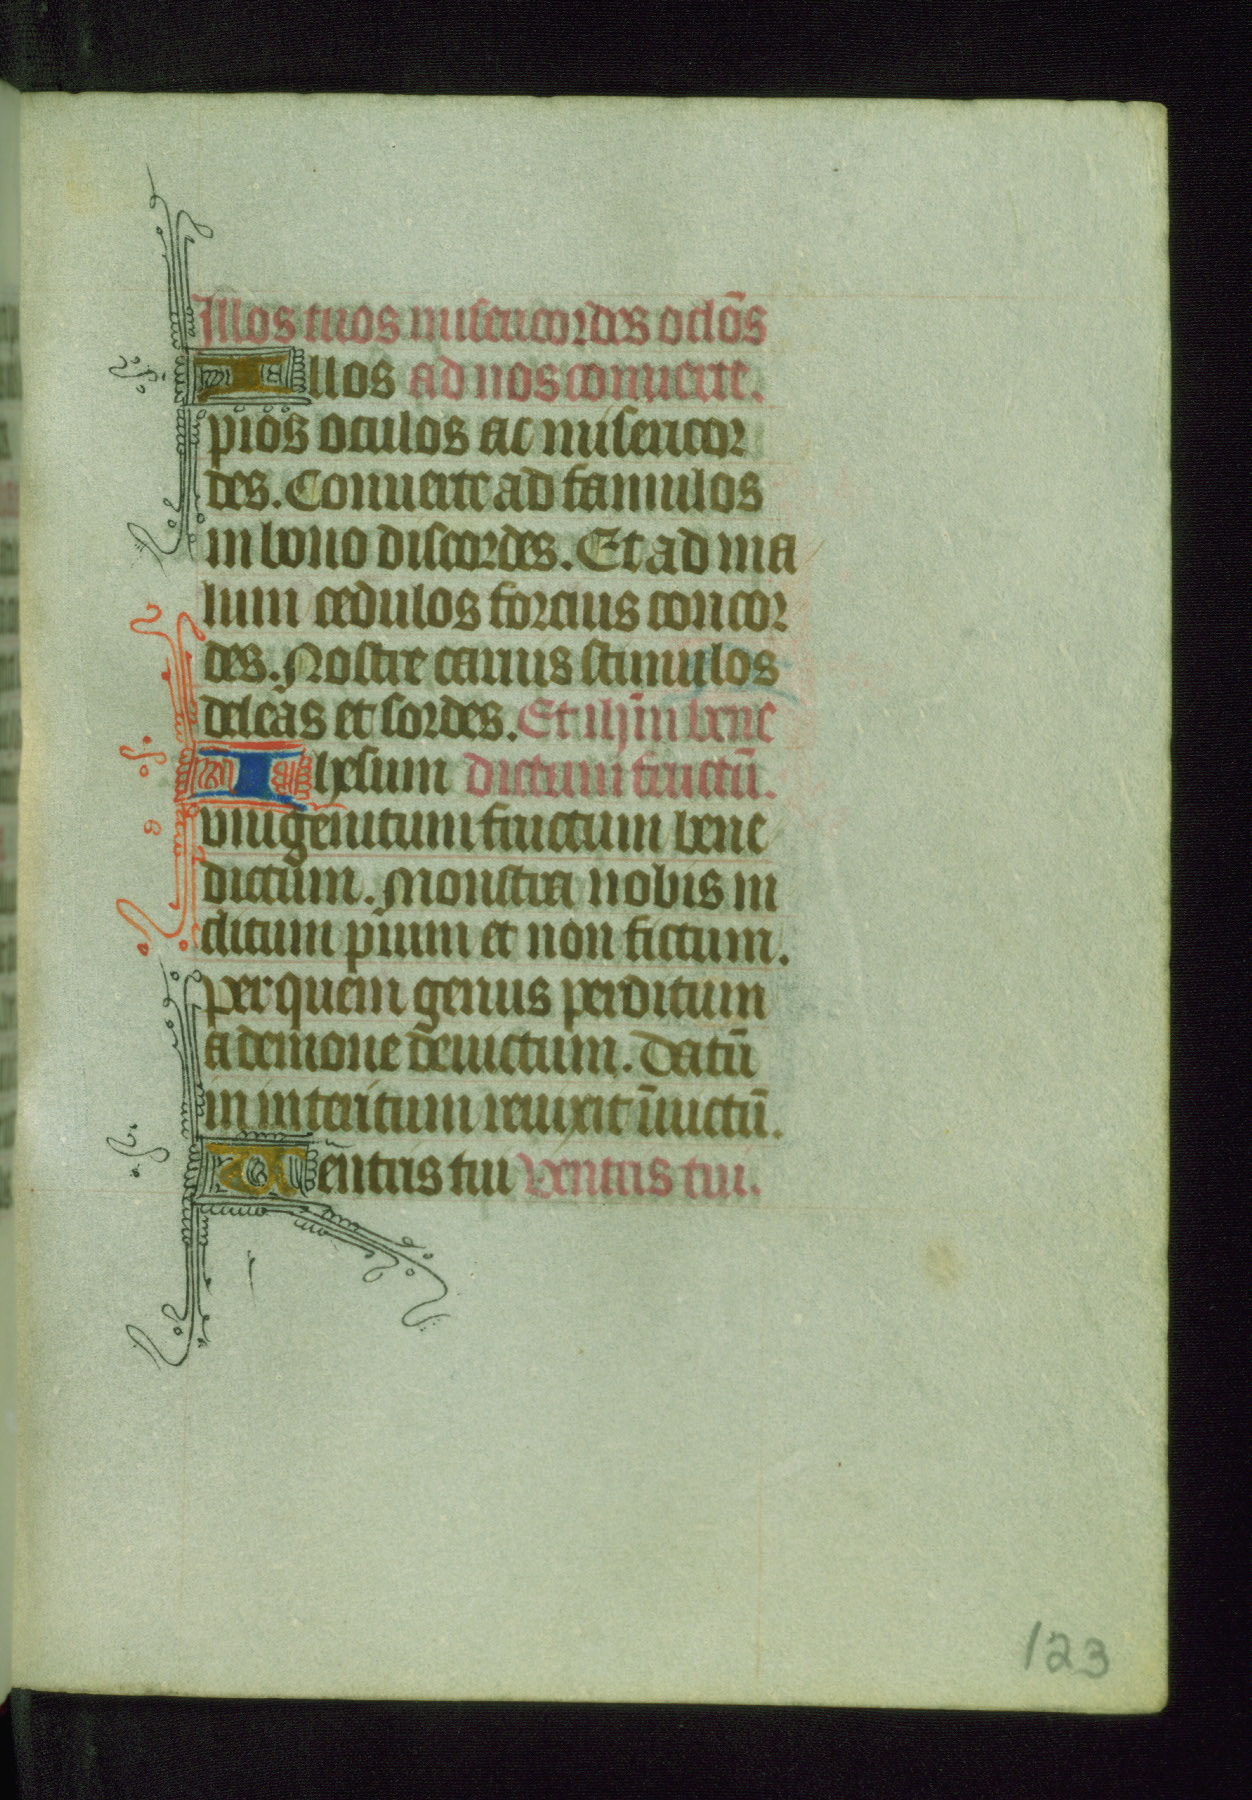 Illos tuos misericordes oclōs
Illos ad nos conuerte.
pios oculos ac misericor
des. Conuerte ad famulos
in bono discordes. Et ad ma
lum credulos forcius concor
des. Nostre carnis stimulos
deleas et sordes. Et ihm̄ bene
Ihesum dictum fructū.
vnigenitum fructum bene
dictum. Monstra nobis in
clitum pium et non fictum.
Per quem genus perditum
a demone deuictum. Datū
in interitum reuixit īuictū.
Uentris tui Ventris tui.
123